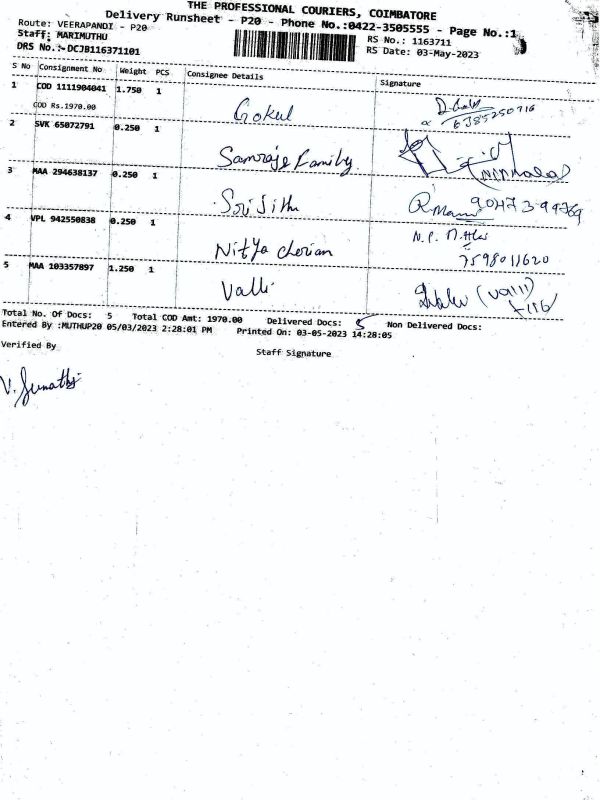 THE PROFESSIONAL COURIERS, COIMBATORE
Delivery Runsheet - P20 - Phone No.:0422-3505555 - Page No.:1
Route: VEERAPANDI - P20
Staff: MARIMUTHU
DRS No.:-DCJB116371101
RS No.: 1163711
RS Date: 03-May-2023
S No Consignment No Weight PCS Consignee Details Signature
1 COD 1111904041 1.750 1
COD Rs.1970.00
Gokul
6385250716
2 SVK 65072791 0.250 1
Samraje Family
3 MAA 294638137 0.250 1
Sri Jith
4 VPL 942550838 0.250 1
Nitya cherian
7598011620
5 MAA 103357897 1.250 1
Valli
(Valli)
Total No. Of Docs: 5 Total COD Amt: 1970.00 Delivered Docs: 5 Non Delivered Docs:
Entered By :MUTHUP20 05/03/2023 2:28:01 PM Printed On: 03-05-2023 14:28:05
Verified By
Staff Signature